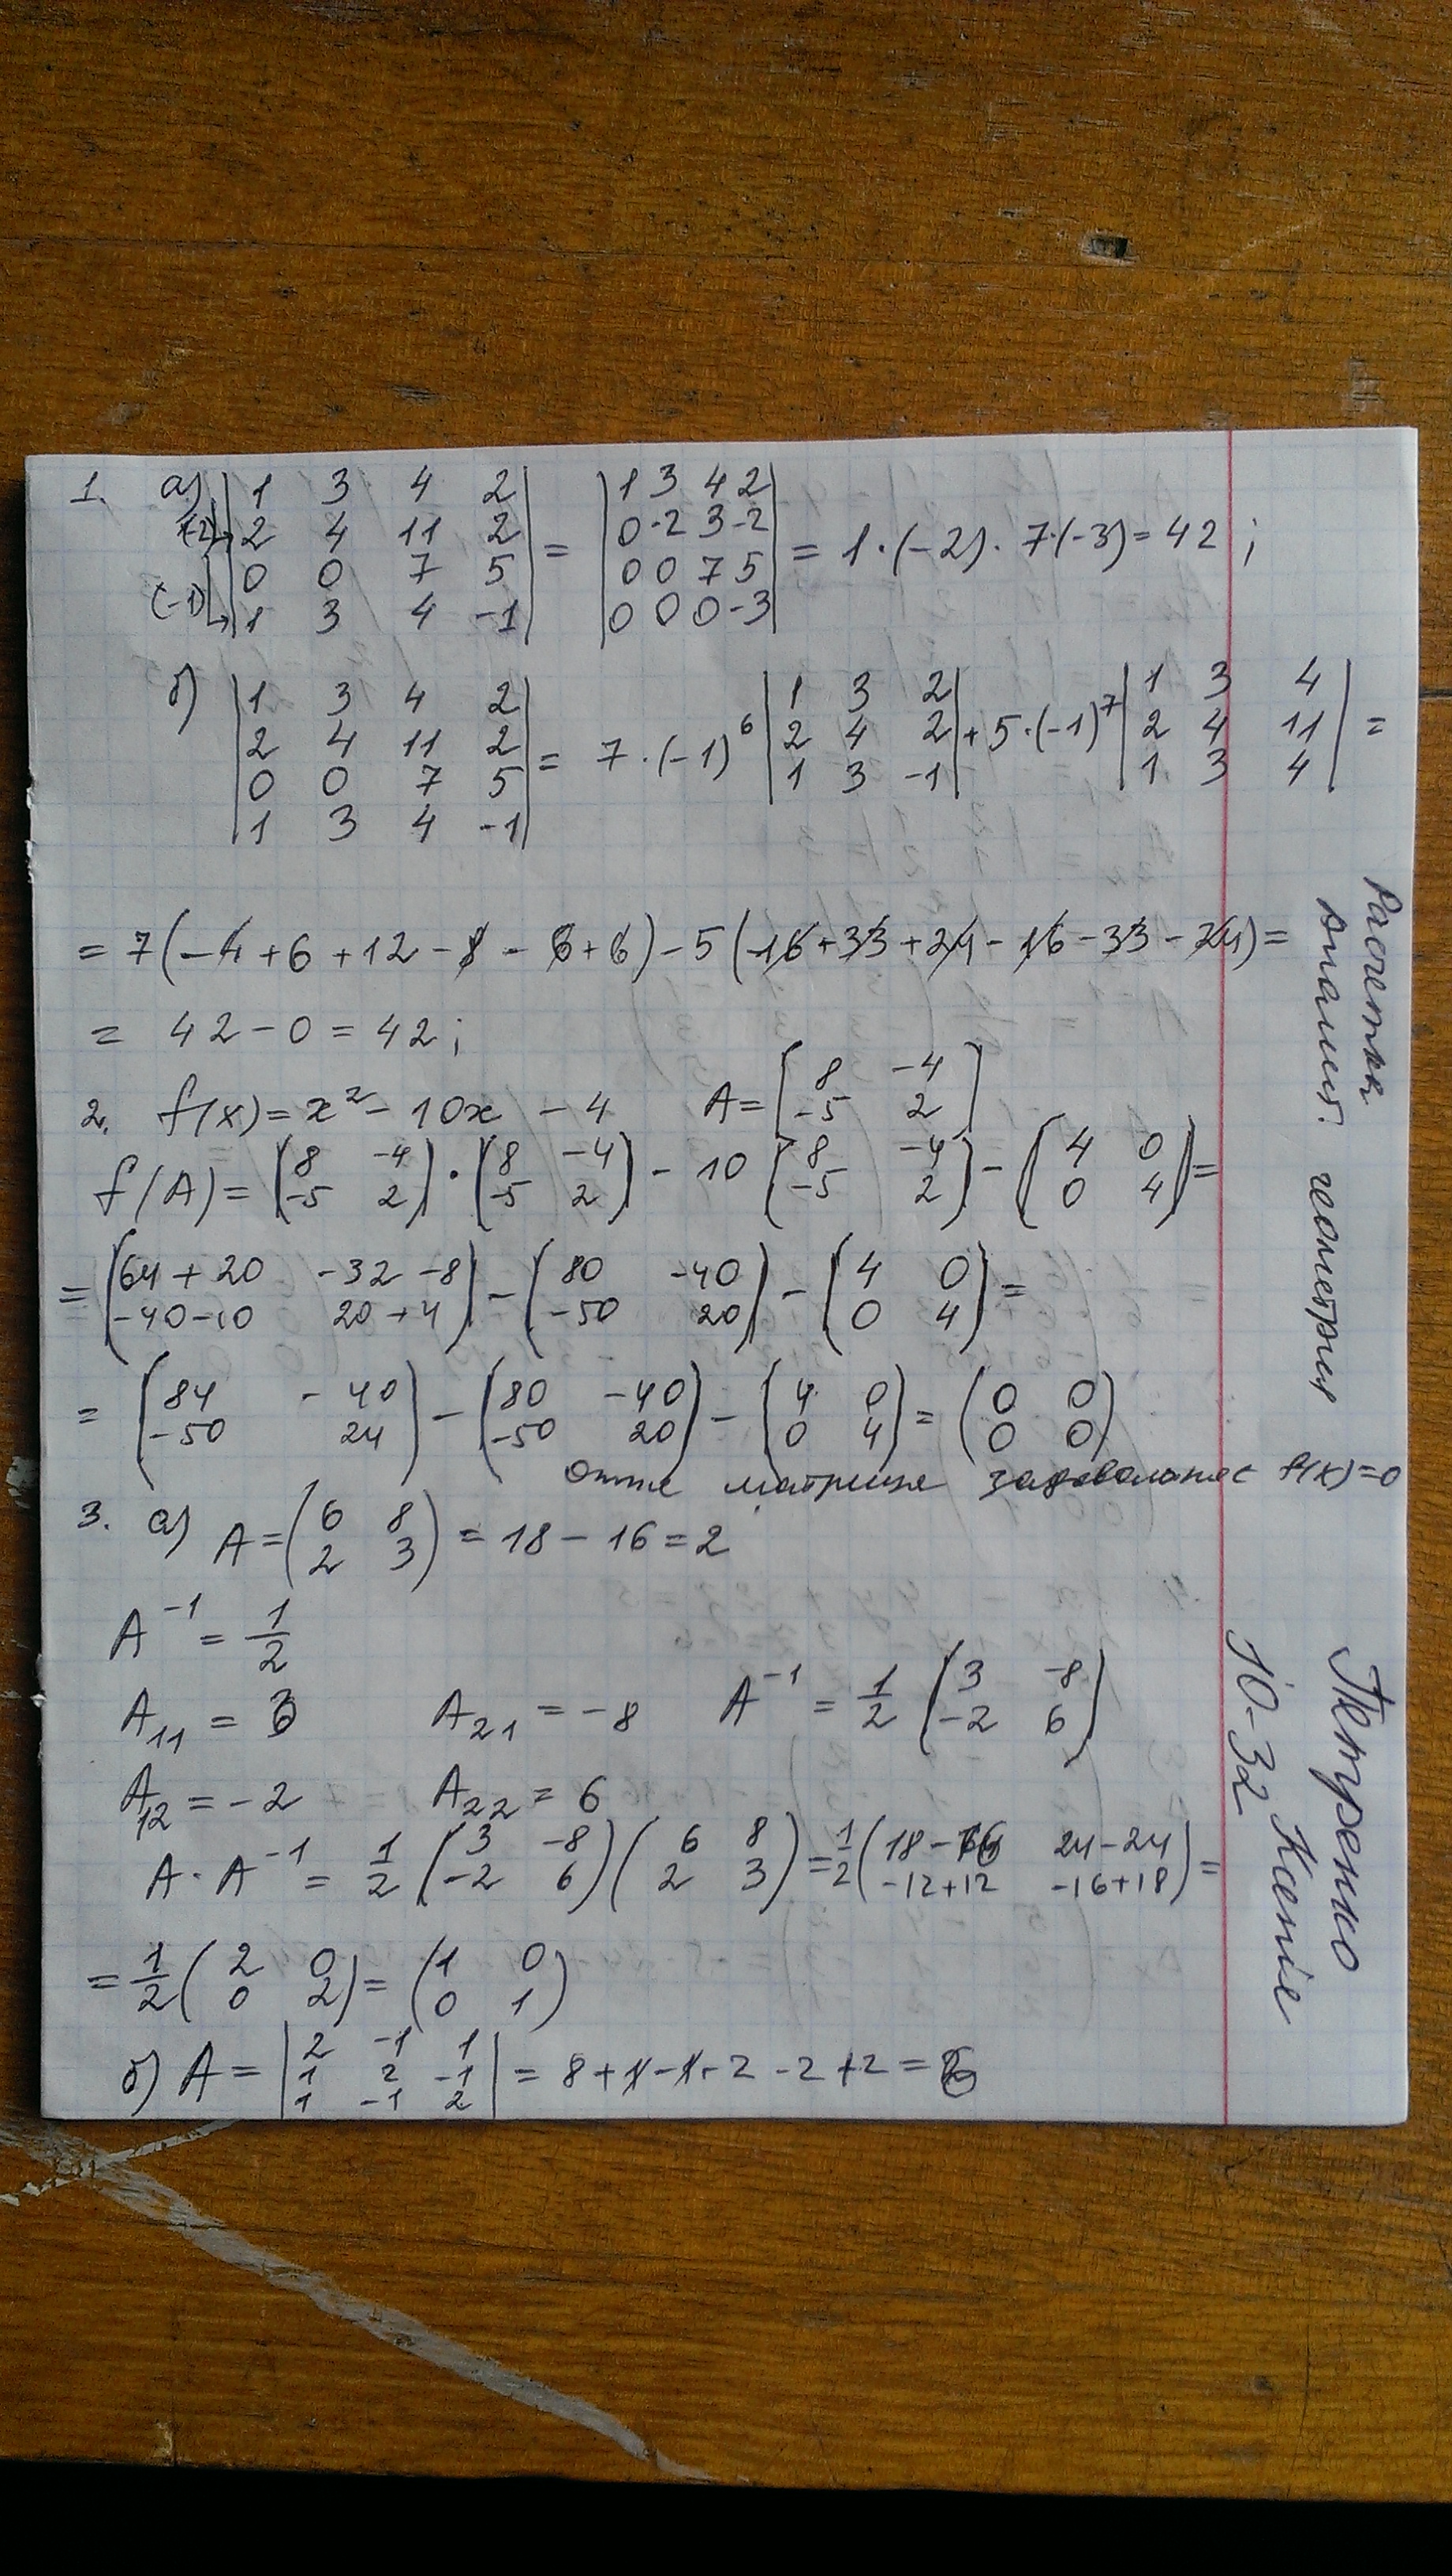 1. а) |1 3 4 2; 2 4 11 2; 0 0 7 5; 1 3 4 -1| = |1 3 4 2; 0 -2 3 -2; 0 0 7 5; 0 0 0 -3| = 1·(-2)·7·(-3) = 42;
(-2)
(-1)
б) |1 3 4 2; 2 4 11 2; 0 0 7 5; 1 3 4 -1| = 7·(-1)^6 |1 3 2; 2 4 2; 1 3 -1| + 5·(-1)^7 |1 3 4; 2 4 11; 1 3 4| =
= 7(-4 + 6 + 12 - 8 - 6 + 6) - 5(16 + 33 + 24 - 16 - 33 - 24) =
= 42 - 0 = 42;
2. f(x) = x² - 10x - 4 A = [8 -4; -5 2]
f(A) = (8 -4; -5 2)·(8 -4; -5 2) - 10 (8 -4; -5 2) - (4 0; 0 4) =
= (64+20 -32-8; -40-10 20+4) - (80 -40; -50 20) - (4 0; 0 4) =
= (84 -40; -50 24) - (80 -40; -50 20) - (4 0; 0 4) = (0 0; 0 0)
Отже матриця задовольняє f(x)=0
3. а) A = (6 8; 2 3) = 18 - 16 = 2
A^-1 = 1/2
A11 = 3 A21 = -8 A^-1 = 1/2 (3 -8; -2 6)
A12 = -2 A22 = 6
A·A^-1 = 1/2 (3 -8; -2 6)(6 8; 2 3) = 1/2 (18-16 24-24; -12+12 -16+18) =
= 1/2 (2 0; 0 2) = (1 0; 0 1)
б) A = |2 -1 1; 1 2 -1; 1 -1 2| = 8 + 1 - 1 - 2 - 2 + 2 = 6
геометрия
Петренко
Ксенія
10-32